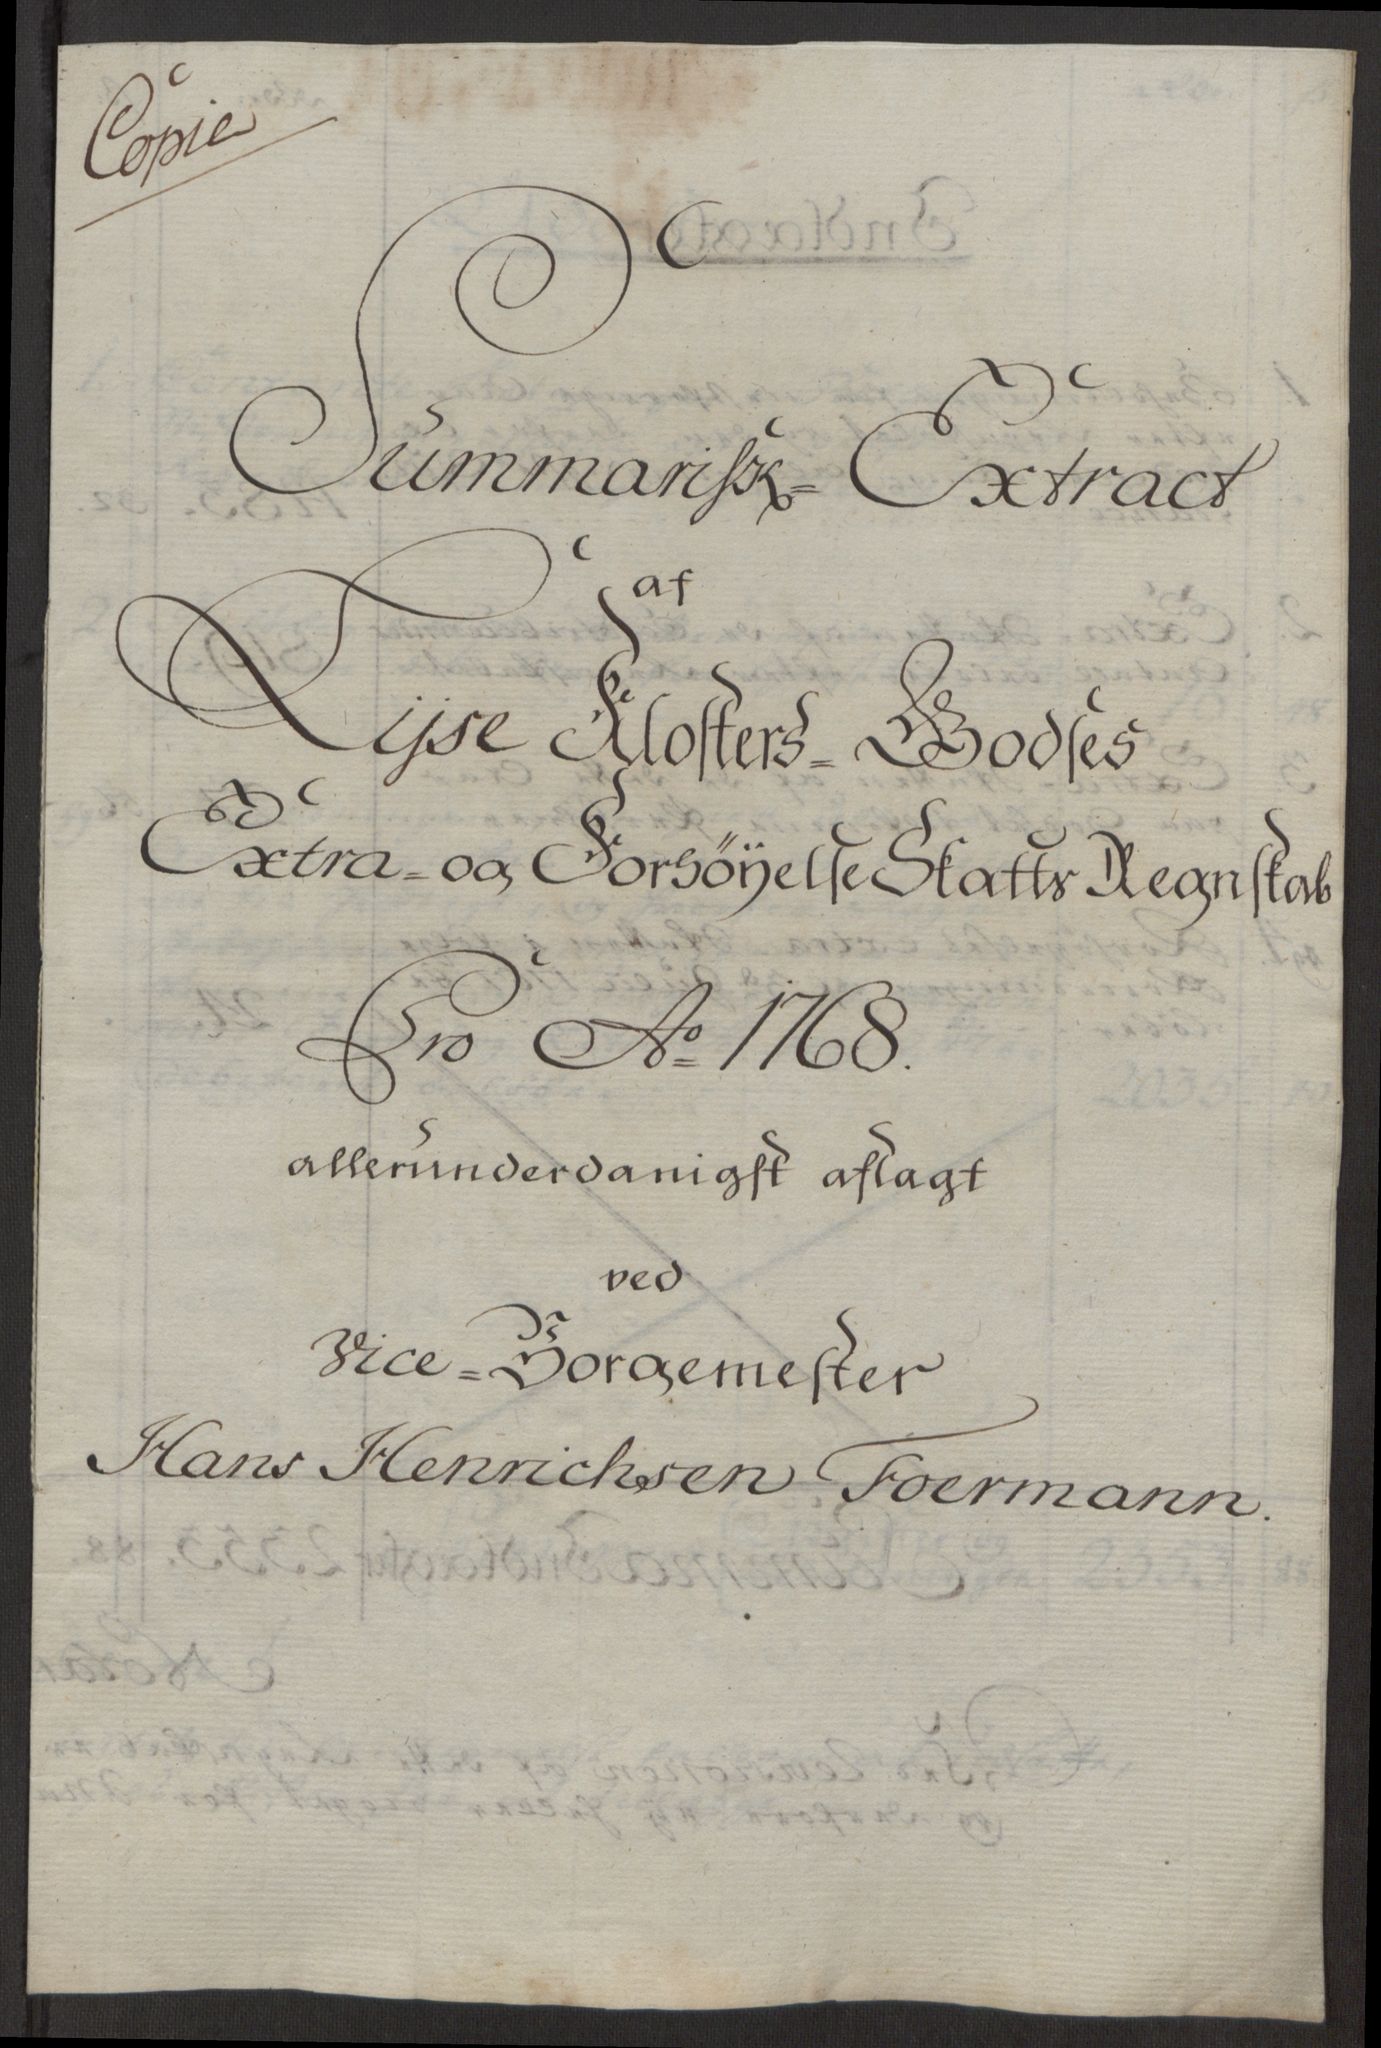 Copie
Summarisk= Extract
af
Lijse Klosters= Godses
Extra= og Forhöÿelse Skatts Regnskab
Pro Ao= 1768.
allerunderdanigst aflagt
ved
Vice=Borgemester
Hans Henrichsen Foermann.